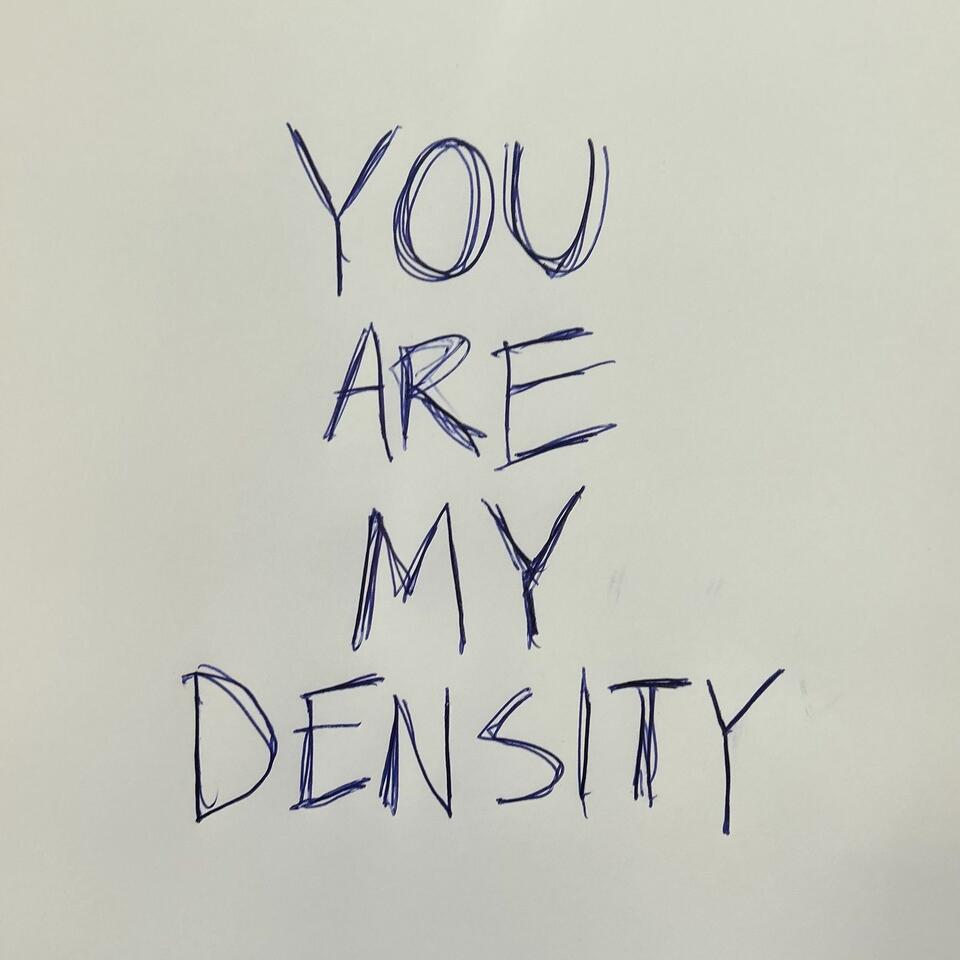 YOU
ARE
MY
DENSITY